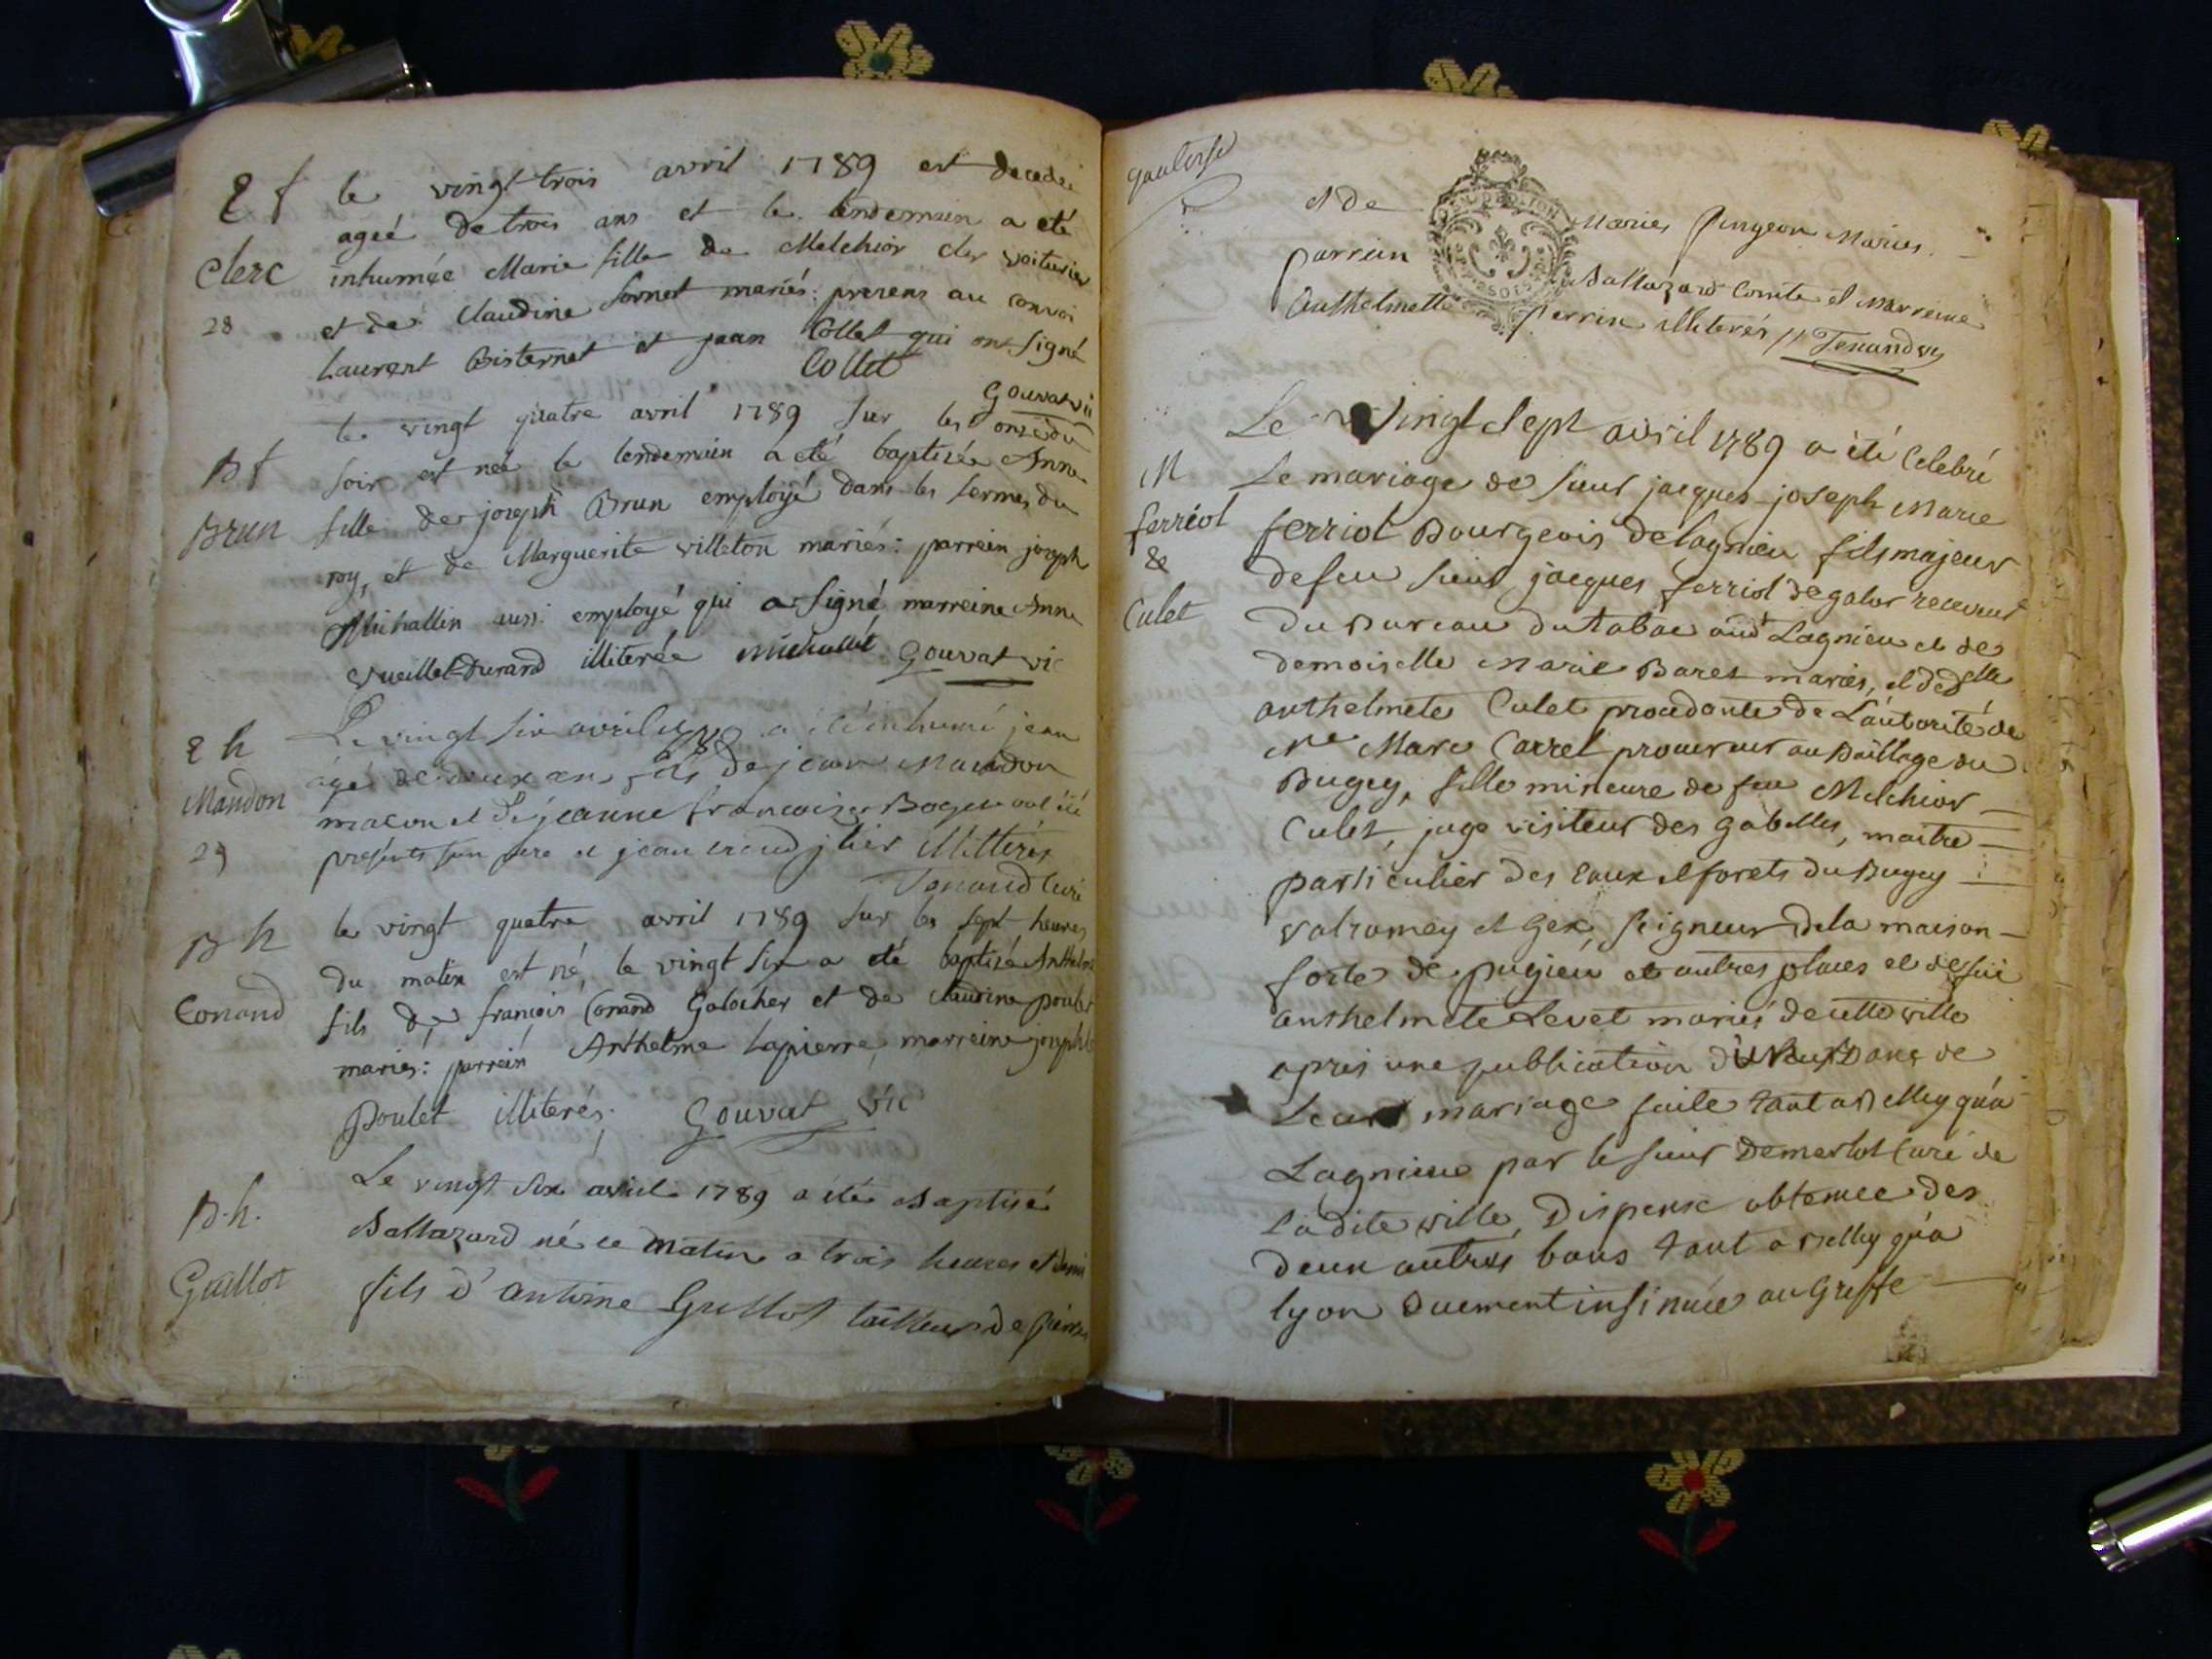 E f
le vingt-trois avril 1789 est decedeé
ageé de trois ans et le lendemain a eté
Clerc
inhumée Marie fille de Melchior cler voiturier
28
et de Claudine Sornet mariés: presens au convoi
Laurent Bisternet et jean Collet qui ont signé
Collet
Gouvat vic
le vingt quatre avril 1789 sur les onze du
B f
soir est neé le lendemain a eté baptisée Anne
Brun
fille de joseph Brun employé dans les fermes du
roy, et de Marguerite villeton mariés: parrein joseph
Michallin aussi employé qui a signé marreine Anne
vueillet-Durand illiterée Michallet Gouvat vic
E h
Le vingt six avril 1789 a été inhumé jean
Mandon
âgé de deux ans fils de jean Mandon
29
macon et de jeanne francoise Boget ont été
présents son pere et jean illitterés
Tenand Curé
B h
le vingt quatre avril 1789 sur les sept heures
du matin est né, le vingt six a eté baptisé Anthelme
Conand
fils de françois Conand Galocher et de claudine poulet
mariés: parrein Anthelme Lapierre marreine josephte
poulet illiterés. Gouvat vic
B.h.
Le vingt six avril 1789 a été Baptisé
Baltazard né ce matin a trois heures et demi
Guillot
fils d'antoine Guillot tailleur de pierres
et de Maries pingeon Mariés
parrein Baltazard Comte et Marreine
Anthelmette perrin illiterés // Tenand
Le vingt Sept avril 1789 a été Celebré
M
Le mariage de sieur jacques joseph Marie
ferriol
ferriol Bourgeois de Lagnieu fils majeur
&
de feu sieur jacques ferriol de galor receveur
Culet
du Bureau du tabac audt Lagnieu et de
demoiselle Marie Baret mariés, et de delle
anthelmete Culet procedante de L'autorité de
Me Marc Carrel procureur au Baillage du
Bugey, fille mineure de feu Melchior
Culet, juge visiteur des gabelles, maître
particulier des eaux et forets du Bugey
valromey et Gex, seigneur de la maison
forte de pugieu et autres places et de
anthelmete Levet mariés de cette ville
apres une publication du Bans de
Leur mariage faite tant a Belley qu'a
Lagnieu par le sieur Demerlot Curé de
ladite ville, Dispense obtenue des
deux autres bans tant a Belley qu'a
lyon duement insinuée au Greffe